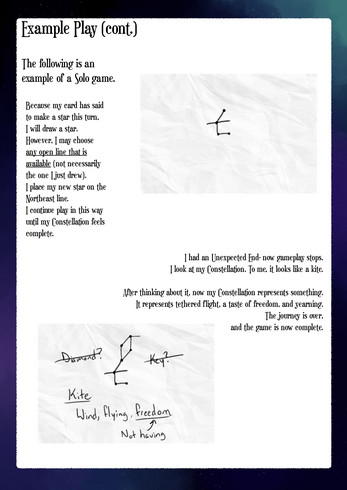 Example Play (cont.)
The following is an
example of a Solo game.
Because my card has said
to make a star this turn,
I will draw a star.
However, I may choose
any open line that is
available (not necessarily
the one I just drew).
I place my new star on the
Northeast line.
I continue play in this way
until my Constellation feels
complete.
I had an Unexpected End- now gameplay stops.
I look at my Constellation. To me, it looks like a kite.
After thinking about it, now my Constellation represents something.
It represents tethered flight, a taste of freedom, and yearning.
The journey is over,
and the game is now complete.
Diamond?
Key?
Kite
Wind, flying, freedom
Not having